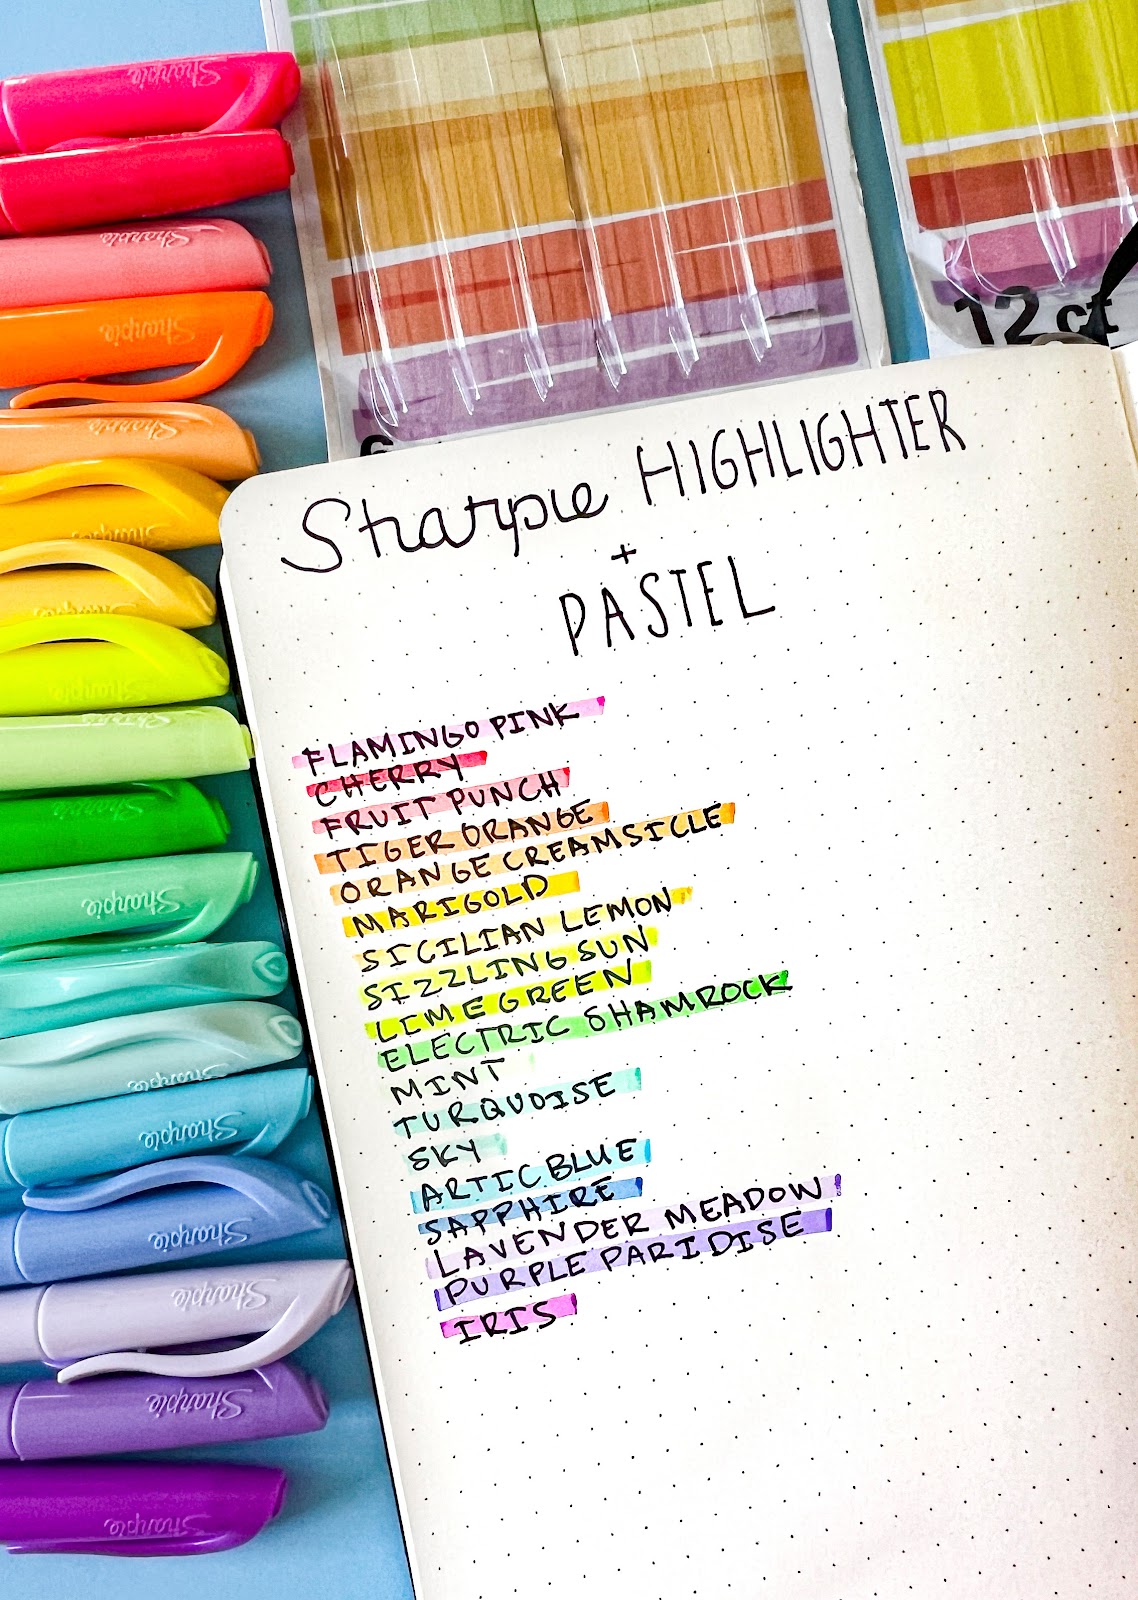 Sharpie
Sharpie
Sharpie
Sharpie
Sharpie
Sharpie
Sharpie
Sharpie
Sharpie
Sharpie
Sharpie
Sharpie
Sharpie
Sharpie
Sharpie
Sharpie
12 ct
6
Sharpie HIGHLIGHTER
+
PASTEL
FLAMINGO PINK
CHERRY
FRUIT PUNCH
TIGER ORANGE
ORANGE CREAMSICLE
MARIGOLD
SICILIAN LEMON
SIZZLING SUN
LIME GREEN
ELECTRIC SHAMROCK
MINT
TURQUOISE
SKY
ARTIC BLUE
SAPPHIRE
LAVENDER MEADOW
PURPLE PARIDISE
IRIS